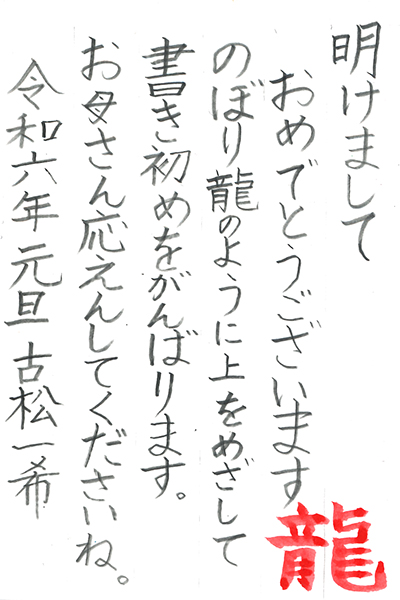 明けまして
おめでとうございます
のぼり龍のように上をめざして
書き初めをがんばります。
お母さん応えんしてくださいね。
令和六年元旦古松一希
龍